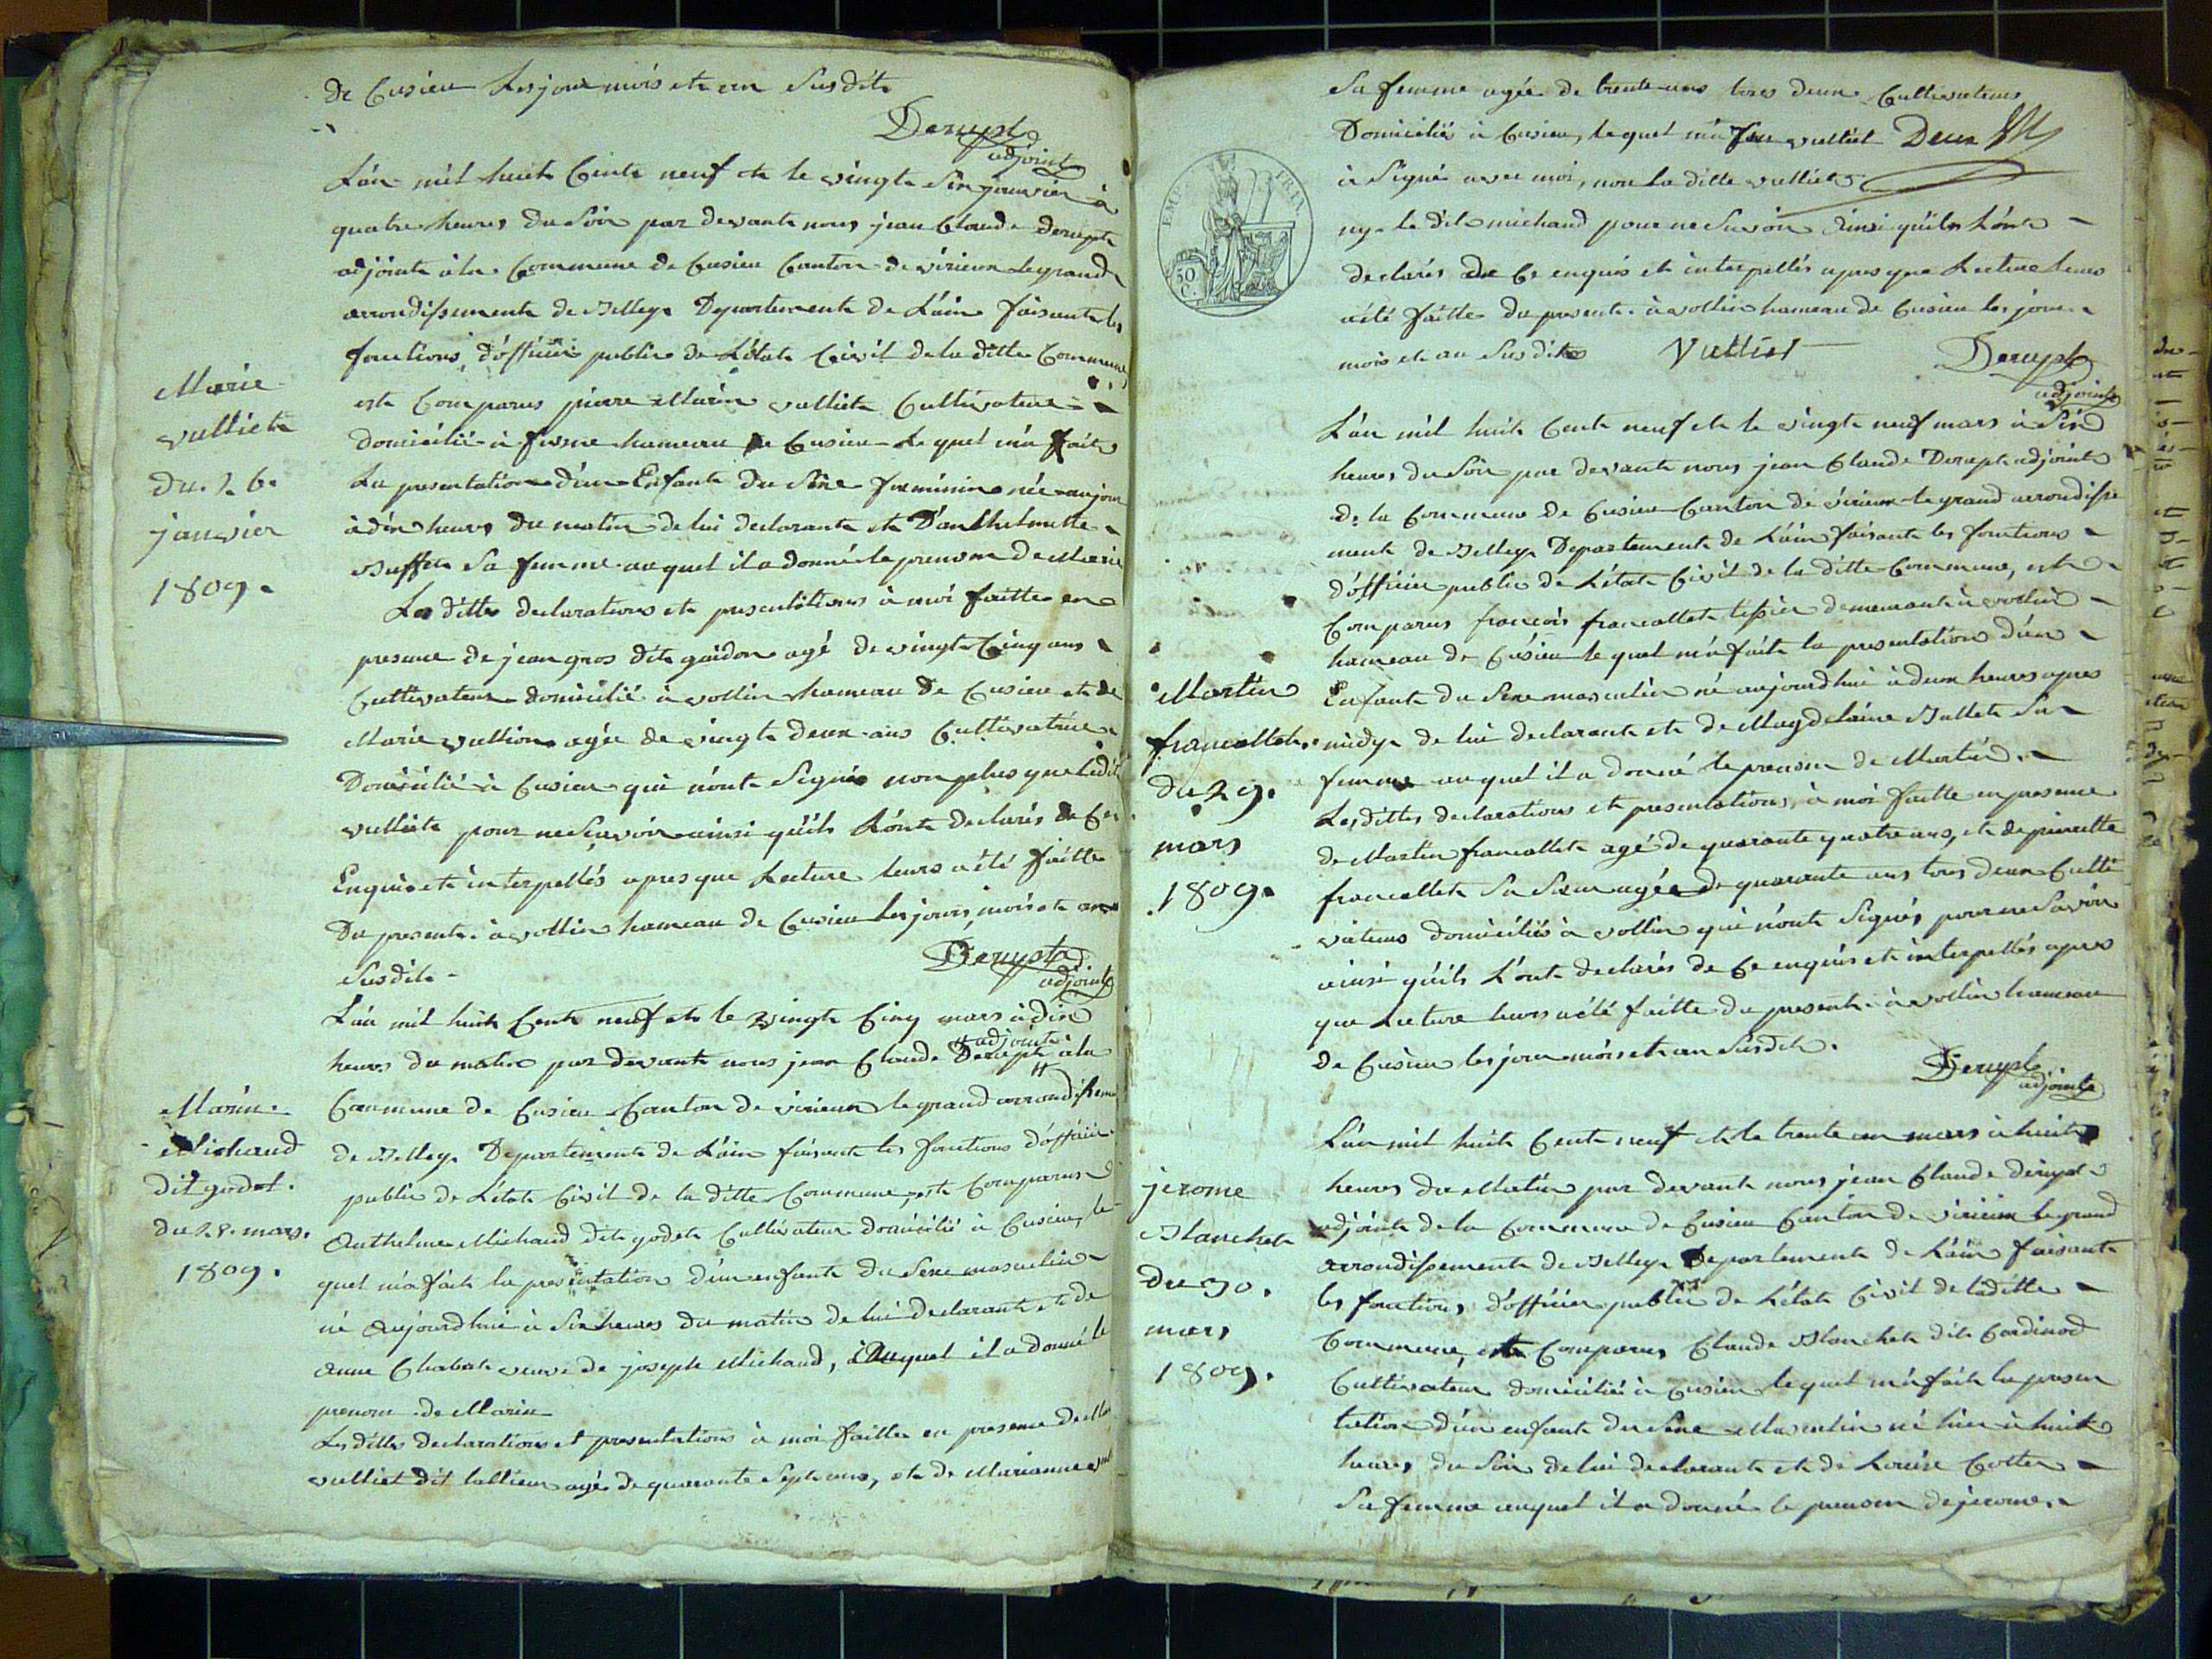 de Cusieu Les jour mois et an Susdite
Derupt
adjoint
L'an mil huit Cent neuf et le vingt Six janvier à
quatre heures du Soir par devant nous jean Claude Derupt
adjoint à la Commune de Cusieu Canton de virieux le grand
arrondissement de Belley Departement de L'ain faisant les
fonctions d'officier public de L'état Civil de la ditte Commune
est Comparus pierre Marin vulliet Cultivateur
domicilié à hameau de Cusieu Le quel m'a fait
La presentation d'un Enfant du Sexe feminin née aujour
à dix heures du matin de lui declarant et D'anthelmette
Buffet Sa femme auquel il a donné le prenom de Marie
Les dittes declarations et presentations à moi faitte en
presence de jean gros dit guidon agé de vingt Cinq ans
Cultivateur domicilié à vollin hameau de Cusieu et de
Marie vullion agée de vingt deux ans Cultivatrice
Domicilié à Cusieu qui n'ont Signés non plus que Ledit
vulliet pour ne Scavoir ainsi qu'ils L'ont declarés de Ce
Enquis et interpellés apres que Lecture leurs a été faitte
Du present à vollin hameau de Cusieu les jours, mois et an
Susdit
Derupt
adjoint
Marie
vulliet
du 26.
janvier
1809.
L'an mil huit Cent neuf et le vingt Cinq mars à dix
heures du matin par devant nous jean Claude Derupt à la
adjoint
Commune de Cusieu Canton de virieux le grand arrondisseme
de Belley Departement de L'ain faisant les fonctions d'officier
public de L'état Civil de la ditte Commune, est Comparus
Anthelme Michaud dit godet Cultivateur domicilié à Cusieu, le
quel m'a fait la presentation d'un enfant du Sexe masculin
né Aujourdhui à Six heures du matin de lui declarant et de
anne Chabert veuve de joseph Michaud, auquel il a donné le
prenom de Marin
Les dittes declarations et presentations à moi faittes en presence de
vulliet dit agé de quarante Sept ans, et de Marianne
Marin
Michaud
dit godet.
du 28. mars.
1809.
EMP. FRA.
50
C.
Sa femme agée de trente ans tous deux Cultivateurs
Domiciliés à Cusieu, lequel vulliet Deux
à Signé avec moi, non la ditte vulliet
ny le dit michaud pour ne Savoir Ainsi qu'ils L'ont
declarés de Ce enquis et interpellés apres que Lecture leurs
a été faitte du present à vollin hameau de Cusieu les jour
mois et an Susdits
Vulliet
Derupt
adjoint
L'an mil huit Cent neuf et le vingt neuf mars à Six
heures du Soir par devant nous jean Claude Derupt adjoint
de la Commune de Cusieu Canton de virieux le grand arrondisse
ment de Belley Departement de L'ain faisant les fonctions
d'officier public de L'état Civil de la ditte Commune, est
Comparus francois francallet tissier demeurant à vollin
hameau de Cusieu le quel m'a fait la presentation d'un
Enfant du Sexe masculin né aujourdhui à deux heures apres
midy de lui declarant et de Magdelaine Ballet Sa
femme auquel il a donné le prenom de Martin.
Les dittes declarations et presentations, à moi faitte en presence
de Martin francallet agé de quarante quatre ans, et de pierrette
francallet Sa Soeur agée de quarante ans tous deux Culti
vateurs domiciliés à vollin qui n'ont Signés, pour ne Savoir
ainsi qu'ils L'ont declarés de Ce enquis et interpellés apres
que Lecture leurs a été faitte du present à vollin hameau
de Cusieu les jour mois et an Susdit.
Derupt
adjoint
Martin
francallet.
du 29.
mars
1809.
L'an mil huit Cent neuf et le trente un mars à huit
heures du Matin par devant nous jean Claude derupt
adjoint de la Commune de Cusieu Canton de virieux le grand
arrondissement de Belley Departement de L'ain faisant
les fonctions d'officier public de L'état Civil de la ditte
Commune, est Comparus Claude Blanchet dit Cardinod
Cultivateur domicilié à Cusieu lequel m'a fait la presen
tation d'un enfant du Sexe Masculin né hier à huit
heures du Soir de lui declarant et de Louise Cottet
Sa femme auquel il a donné le prenom de jerome.
jerome
Blanchet
du 30.
mars
1809.